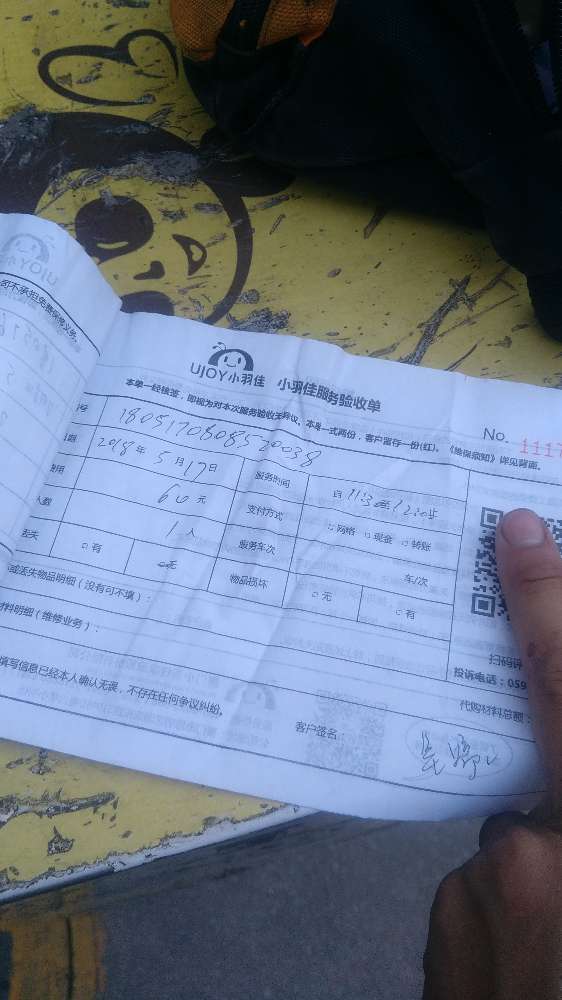 UJOY小羽佳 小羽佳服务验收单
No. 1117
本单一经核签,即视为对本次服务验收无异议。本单一式两份,客户留存一份(红)。《维保须知》详见背面。
号 1805170808570038
日期 2018年5月17日 服务时间 自11:30至12:05止
费用 60元 支付方式 □网络 □现金 □转账
人数 1人 服务车次 车/次
丢失 □有 □无 物品损坏 □无 □有
或丢失物品明细(没有可不填):
材料明细(维修业务):
扫码评
投诉电话:059
代购材料总额:
填写信息已经本人确认无误,不存在任何争议纠纷。
客户签名:
司不承担免费保修义务。